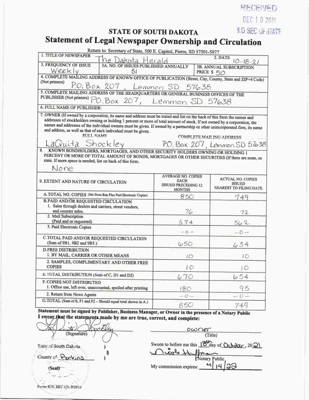 RECEIVED
DEC 10 2021
SD SEC OF STATE
STATE OF SOUTH DAKOTA
Statement of Legal Newspaper Ownership and Circulation
Return to: Secretary of State, 500 E. Capitol, Pierre, SD 57501-5077
1. TITLE OF NEWSPAPER The Dakota Herald
2. DATE 10-18-21
3. FREQUENCY OF ISSUE Weekly
3A. NO. OF ISSUES PUBLISHED ANNUALLY 51
3B. ANNUAL SUBSCRIPTION PRICE $ 50
4. COMPLETE MAILING ADDRESS OF KNOWN OFFICE OF PUBLICATION (Street, City, County, State and ZIP+4 Code)
(Not printers) P.O. Box 207, Lemmon SD 57638
5. COMPLETE MAILING ADDRESS OF THE HEADQUARTERS OR GENERAL BUSINESS OFFICES OF THE
PUBLISHER (Not printers) P.O. Box 207, Lemmon, SD 57638
6. FULL NAME OF PUBLISHER:
7. OWNER (If owned by a corporation, its name and address must be stated and list on the back of this form the names and
addresses of stockholders owning or holding 1 percent or more of total amount of stock. If not owned by a corporation, the
names and addresses of the individual owners must be given. If owned by a partnership or other unincorporated firm, its name
and address, as well as that of each individual must be given.
FULL NAME COMPLETE MAILING ADDRESS
LaQuita Shockley P.O. Box 207, Lemmon SD 57638
8. KNOWN BONDHOLDERS, MORTGAGES, AND OTHER SECURITY HOLDERS OWNING OR HOLDING 1
PERCENT OR MORE OF TOTAL AMOUNT OF BONDS, MORTGAGES OR OTHER SECURITIES (If there are none, so
state. If more space is needed, list on back of this form.
None
9. EXTENT AND NATURE OF CIRCULATION
AVERAGE NO. COPIES EACH ISSUED PRECEDING 12 MONTHS
ACTUAL NO. COPIES ISSUED NEAREST TO FILING DATE
A. TOTAL NO. COPIES 850 749
B. PAID AND/OR REQUESTED CIRCULATION
1. Sales through dealers and carriers, street vendors,
and counter sales. 76 72
2. Mail Subscription
(Paid and or requested) 574 562
3. Paid Electronic Copies -0- -0-
C. TOTAL PAID AND/OR REQUESTED CIRCULATION
(Sum of 9B1, 9B2 and 9B3) 650 634
D. FREE DISTRIBUTION
1. BY MAIL, CARRIER OR OTHER MEANS 10 10
2. SAMPLES, COMPLIMENTARY AND OTHER FREE
COPIES 10 10
E. TOTAL DISTRIBUTION (Sum of C, D1 and D2) 670 654
F. COPIES NOT DISTRIBUTED
1. Office use, left over, unaccounted, spoiled after printing 180 95
2. Return from News Agents -0- -0-
G. TOTAL (Sum of E, F1 and F2 - Should equal total shown in A.) 850 749
Statement must be signed by Publisher, Business Manager, or Owner in the presence of a Notary Public
I swear that the statements made by me are true, correct, and complete:
(Signature) owner (Title)
State of South Dakota
County of Perkins
Sworn to before me this 18th day of October, 2021
(Notary Public)
(Seal)
My commission expires: